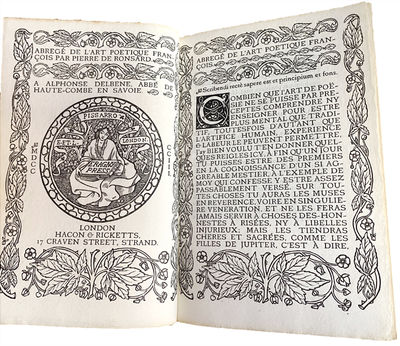 ABREGÉ DE L'ART POETIQUE FRAN-
ÇOIS PAR PIERRE DE RONSARD.
A ALPHONSE DELBENE ABBÉ DE
HAUTE-COMBE EN SAVOIE.
PISSARRO
E. & L.
LONDON
ERAGNY
PRESS
MDCC
LONDON
HACON & RICKETTS,
17 CRAVEN STREET, STRAND.
ABREGÉ DE L'ART POETIQUE FRAN-
ÇOIS.
Scribendi rectè sapere est et principium et fons.
COMBIEN QUE L'ART DE POË-
SIE NE SE PUISSE PAR PRE-
CEPTES COMPRENDRE NY
ENSEIGNER, POUR ESTRE
PLUS MENTAL QUE TRADI-
TIF, TOUTESFOIS D'AUTANT QUE
L'ARTIFICE HUMAIN, EXPERIENCE
& LABEUR LE PEUVENT PERMETTRE,
J'ay BIEN VOULU T'EN DONNER QUEL-
QUES REIGLES ICY, A FIN QU'UN JOUR
TU PUISSES ESTRE DES PREMIERS
EN LA COGNOISSANCE D'UN SI A-
GREABLE MESTIER, À L'EXEMPLE DE
MOY QUI CONFESSE Y ESTRE ASSEZ
PASSABLEMENT VERSÉ. SUR TOU-
TES CHOSES TU AURAS LES MUSES
EN REVERENCE, VOIRE EN SINGULIE-
RE VENERATION, ET NE LES FERAS
JAMAIS SERVIR À CHOSES DES-HON-
NESTES À RISÉES, NY À LIBELLES
INJURIEUX; MAIS LES TIENDRAS
CHERES ET SACRÉES, COMME LES
FILLES DE JUPITER, C'EST À DIRE,